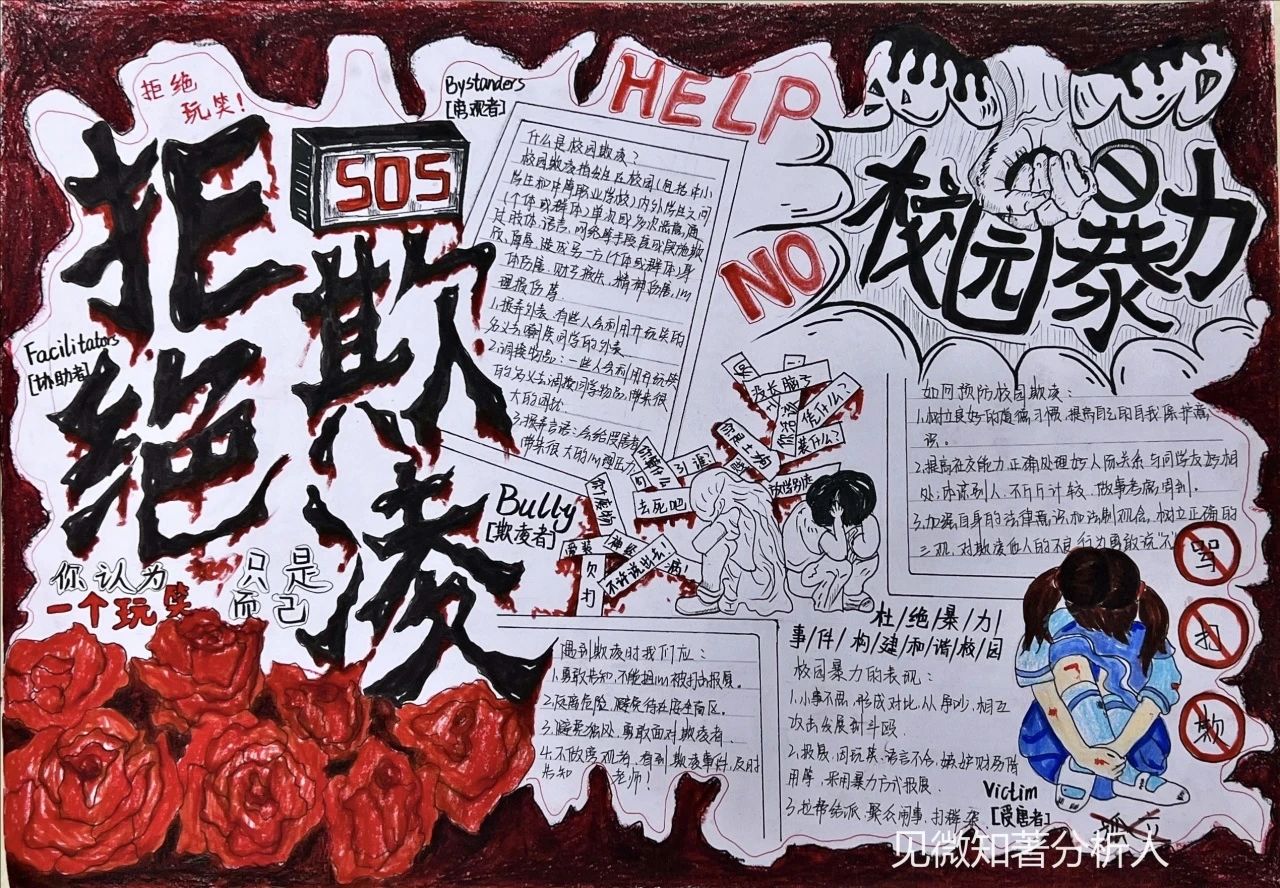 拒绝
玩笑!
拒绝
欺凌
SOS
HELP
NO
校园暴力
Bystanders
[旁观者]
Facilitators
[协助者]
Bully
[欺凌者]
Victim
[受害者]
你认为 只是
一个玩笑 而已
什么是校园欺凌?
校园欺凌指发生在校园(包括中小
学校和中等职业学校)内外学生之间
(个体或群体)单次或多次恶意通
过肢体、语言、网络等手段实施欺
负、侮辱,造成另一方(个体或群体)身
体伤害、财产损失、精神伤害,心
理损伤等
1.损弄外表:有些人会利用开玩笑的
名义去嘲讽同学的外表
的名义去调换同学物品,带来很
大的困扰
带来很大的心理压力
没长脑子
凭什么?
装什么?
去死吧
不许说出去
如何预防校园欺凌:
1.树立良好的道德习惯,提高自己的自我保护意
识。
2.提高社交能力,正确处理好人际关系,与同学友好相
处,原谅别人,不斤斤计较,做事考虑周到。
3.加强自身的法律意识和法制观念,树立正确的
三观,对欺凌他人的不良行为勇敢说"不
骂
打
欺
遇到欺凌时我们应:
1.勇敢告知,不能担心被打击报复。
3.
勇敢面对欺凌者
4.不做旁观者,看到欺凌事件,及时
告知 老师!
杜/绝/暴/力/
事/件/构/建/和/谐/校/园
校园暴力的表现:
1.小事不忍,形成对比,从争吵,相互
攻击发展到斗殴
2.报复,因玩笑、语言不合、嫉妒财物借
用等,采用暴力方式报复
3.拉帮结派,聚众闹事,打群架
见微知著分析人